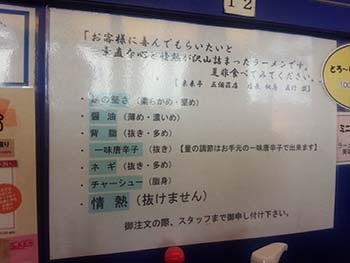 12
「お客様に喜んでもらいたいと
一・直な心と情熱が沢山詰まったラーメンです。
是非食べてみてください。」
【来来亭 五個荘店 店長
・麺の堅さ (柔らかめ・堅め)
・醤油 (薄め・濃いめ)
・背脂 (抜き・多め)
・一味唐辛子 (抜き) 【量の調節はお手元の一味唐辛子で出来ます】
・ネギ (抜き・多め)
・チャーシュー (脂身)
・情熱 (抜けません)
御注文の際、スタッフまで御申し付け下さい。
とろ〜
ミニ